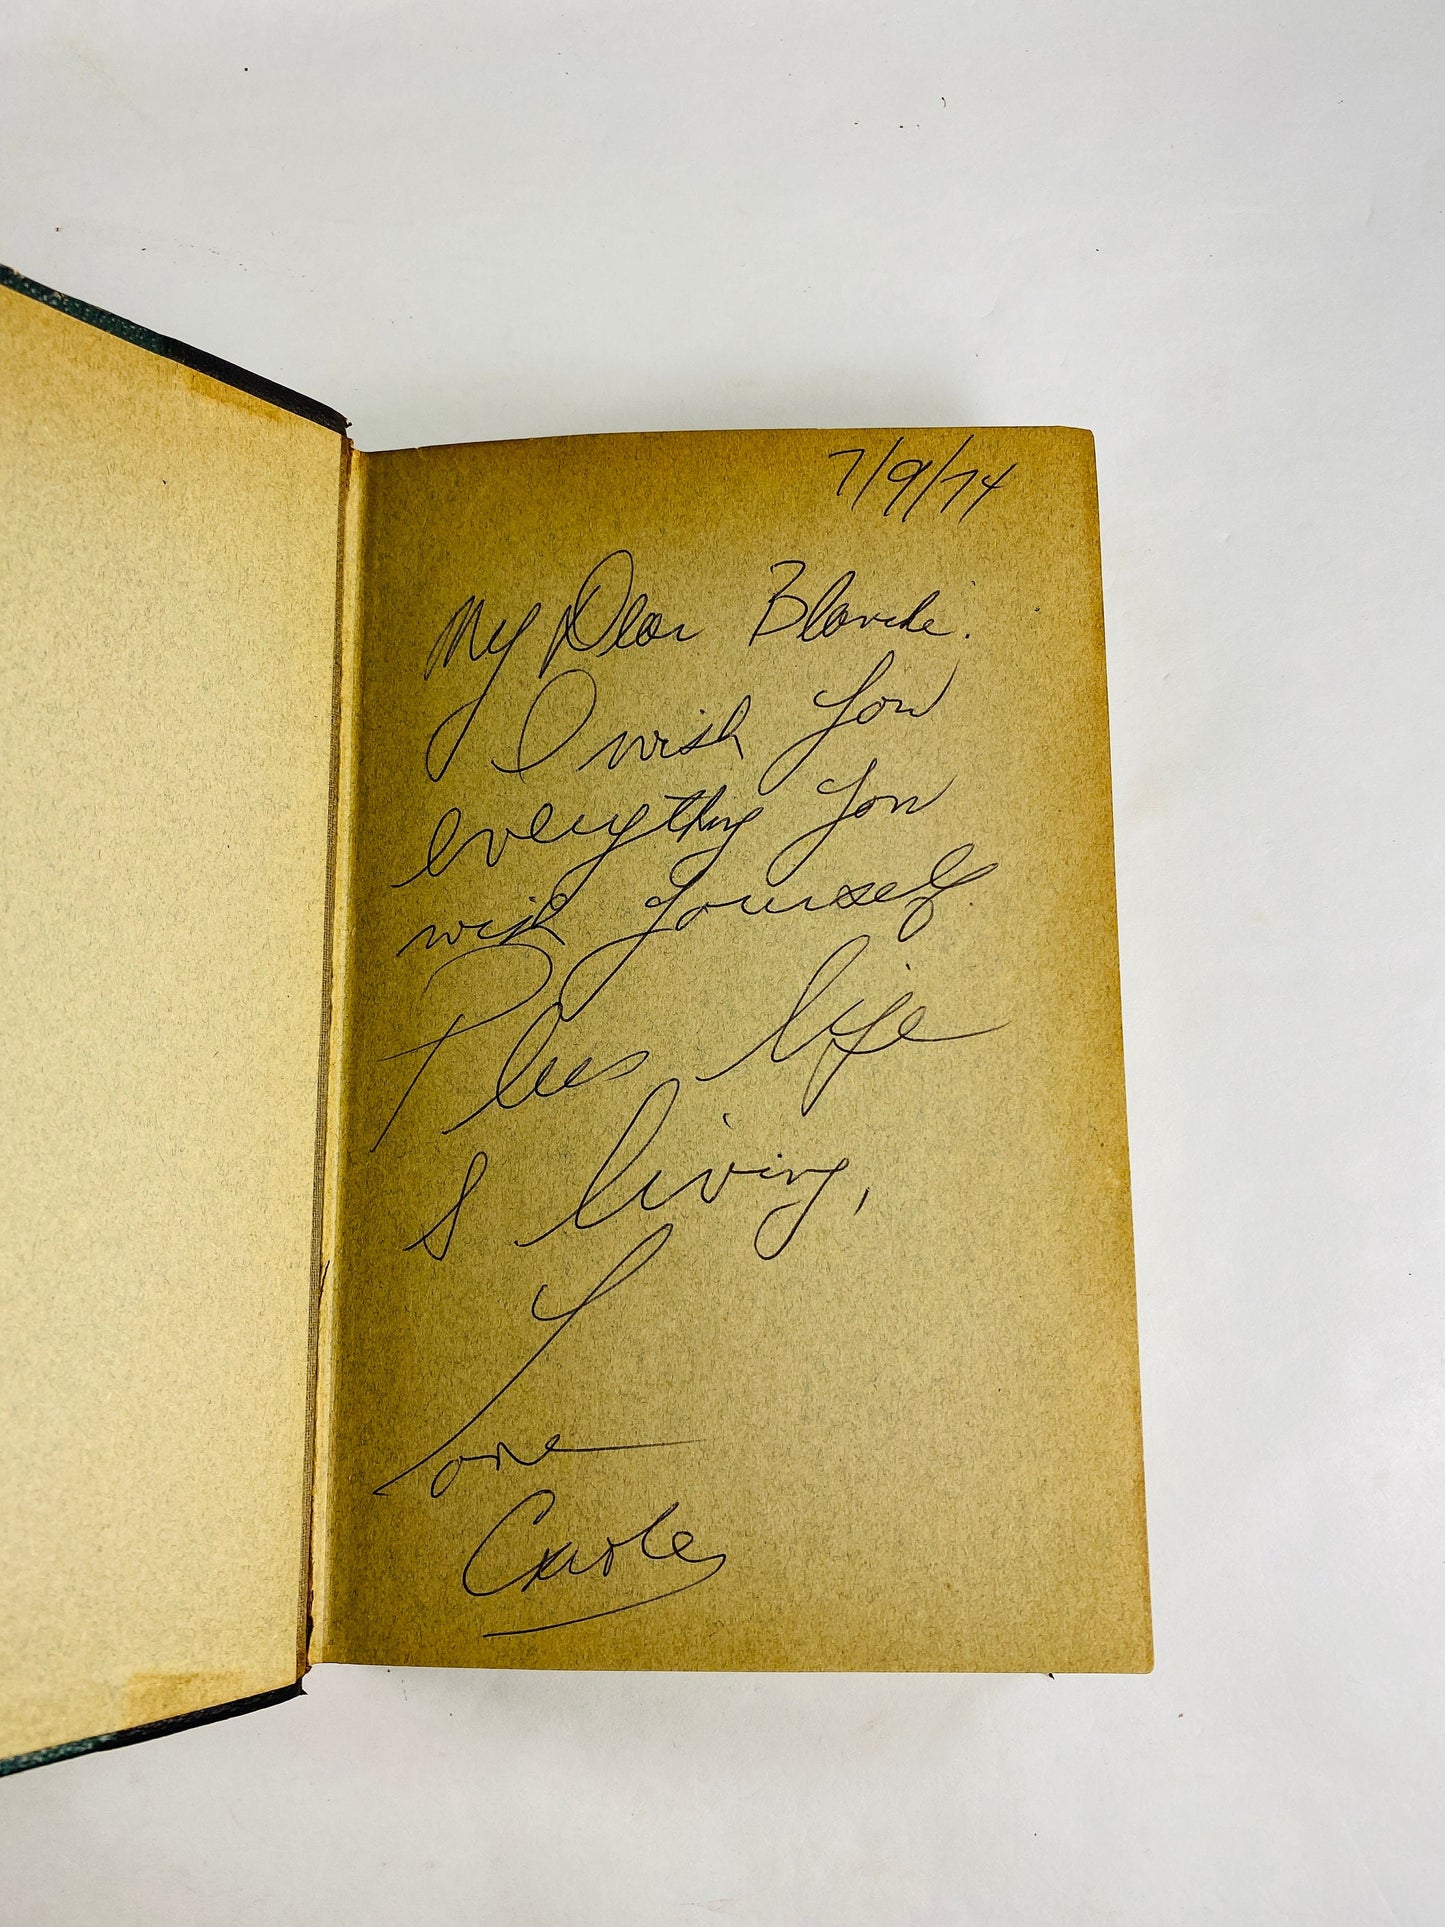 7/9/74
My Dear Blanche.
I wish you
everything you
wish yourself.
Plus life
& living,
Love